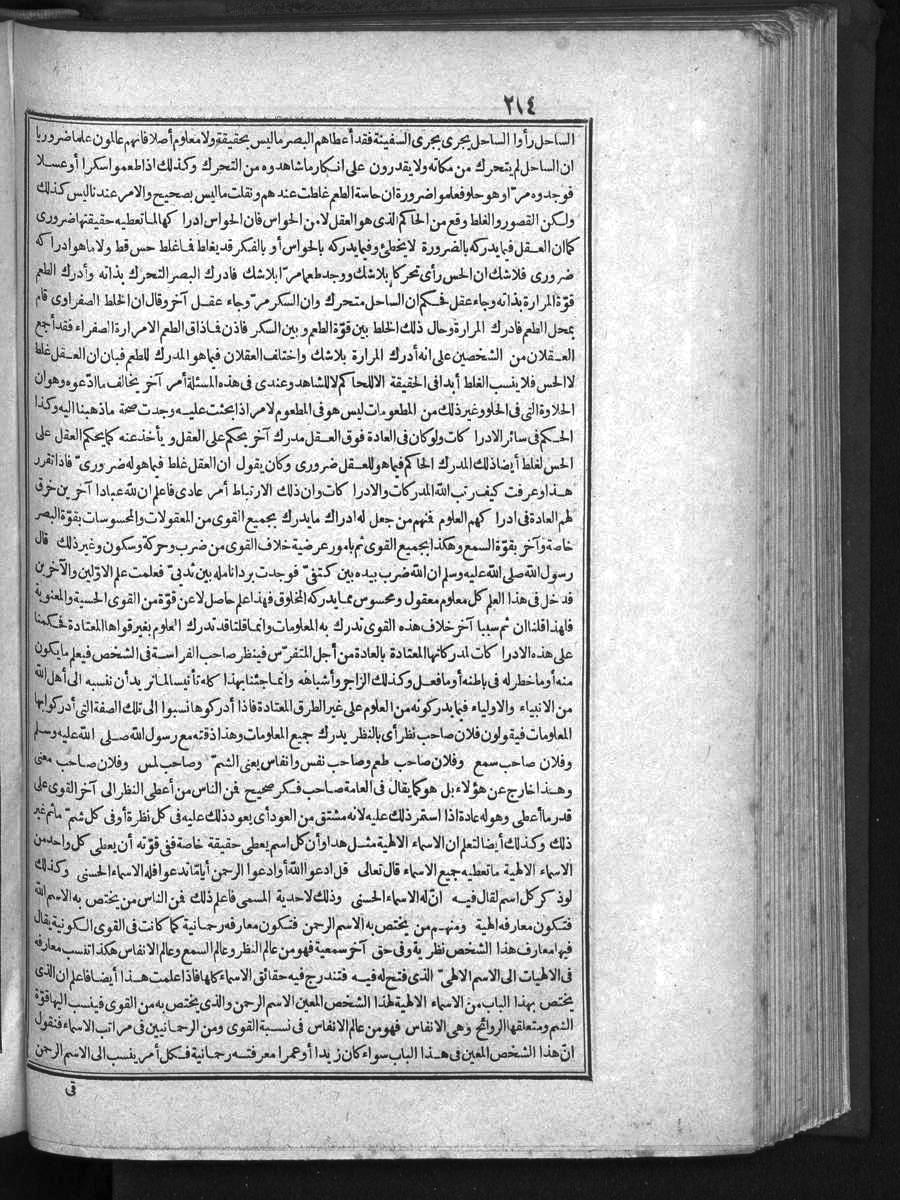 ٢١٤
الساحل رأوا الساحل يجرى بجرى السفينة فقد أعطاهم البصر ما ليس بحقيقة ولا معلوم أصلا فانهم عالمون علما ضروريا
ان الساحل لم يتحرك من مكانه ولا يقدرون على انكار ما شاهدوه من التحرك وكذلك اذا طعموا سكرا أو عسلا
فوجدوه مرّا وهو حلو فعلموا ضرورة ان حاسة الطعم غلطت عندهم ونقلت ما ليس بصحيح والامر عندنا ليس كذلك
ولكن القصور والغلط وقع من الحاكم الذى هو العقل لا من الحواس فان الحواس ادراكها لما تعطيه حقيقتها ضرورى
كما ان العقل فيما يدركه بالضرورة لا يخطئ وفيما يدركه بالحواس أو بالفكر قد يغلط فما غلط حس قط ولا ما هو ادراكه
ضرورى فلا شك ان الحس رأى تحركا بلا شك ووجد طعما مرّا بلا شك فادرك البصر التحرك بذاته وأدرك الطعم
قوّة المرارة بذاته وجاء عقل فحكم ان الساحل متحرك وان السكر مرّ وجاء عقل آخر وقال ان الخلط الصفراوى قام
بمحل الطعم فادرك المرارة وحال ذلك الخلط بين قوّة الطعم وبين السكر فاذن فما ذاق الطعم الا مرارة الصفراء فقد أجمع
العقلان من الشخصين على انه أدرك المرارة بلا شك واختلف العقلان فيما هو المدرك للطعم فبان ان العقل غلط
لا الحس فلا ينسب الغلط أبدا فى الحقيقة الا للحاكم لا للشاهد وعندى فى هذه المسئلة أمر آخر يخالف ما ادّعوه وهو ان
الحلاوة التى فى الحلو وغير ذلك من المطعومات ليس هو فى المطعوم لامر اذا بحثت عليه وجدت صحة ما ذهبنا اليه وكذا
الحكم فى سائر الادراكات ولو كان فى العادة فوق العقل مدرك آخر يحكم على العقل ويأخذ عنه كما يحكم العقل على
الحس لغلط أيضا ذلك المدرك الحاكم فيما هو للعقل ضرورى وكان يقول ان العقل غلط فيما هو له ضرورىّ فاذا تقرر
هذا وعرفت كيف رتب الله المدركات والادراكات وان ذلك الارتباط أمر عادى فاعلم ان لله عبادا آخرين خرق
لهم العادة فى ادراكهم العلوم فمنهم من جعل له ادراك ما يدرك بجميع القوى من المعقولات والمحسوسات بقوّة البصر
خاصة وآخر بقوّة السمع وهكذا بجميع القوى ثم بامور عرضية خلاف القوى من ضرب وحركة وسكون وغير ذلك قال
رسول الله صلى الله عليه وسلم ان الله ضرب بيده بين كتفىّ فوجدت برد انامله بين ثديىّ فعلمت علم الاوّلين والآخرين
فدخل فى هذا العلم كل معلوم معقول ومحسوس مما يدركه المخلوق فهذا علم حاصل لا عن قوّة من القوى الحسية والمعنوية
فلهذا قلنا ان ثم سببا آخر خلاف هذه القوى تدرك به المعلومات وانما قلنا قد تدرك العلوم بغير قواها المعتادة فحكمنا
على هذه الادراكات لمدركاتها المعتادة بالعادة من أجل المتفرّس فينظر صاحب الفراسة فى الشخص فيعلم ما يكون
منه أو ما خطر له فى باطنه أو ما فعل وكذلك الزاجر وأشباهه وانما جئنا بهذا كله تأنيسا لما نريد أن ننسبه الى أهل الله
من الانبياء والاولياء فيما يدركونه من العلوم على غير الطرق المعتادة فاذا أدركوها نسبوا الى تلك الصفة التى أدركوا بها
المعلومات فيقولون فلان صاحب نظر أى بالنظر يدرك جميع المعلومات وهذا ذقته مع رسول الله صلى الله عليه وسلم
وفلان صاحب سمع وفلان صاحب طعم وصاحب نفس وانفاس يعنى الشمّ وصاحب لمس وفلان صاحب معنى
وهذا خارج عن هؤلاء بل هو كما يقال فى العامة صاحب فكر صحيح فمن الناس من أعطى النظر الى آخر القوى على
قدر ما أعطى وهو له عادة اذا استمر ذلك عليه لانه مشتق من العود أى يعود ذلك عليه فى كل نظرة أو فى كل شمّ ما ثم غير
ذلك وكذلك أيضا لتعلم ان الاسماء الالهية مثل هذا وأن كل اسم يعطى حقيقة خاصة ففى قوّته أن يعطى كل واحد من
الاسماء الالهية ما تعطيه جميع الاسماء قال تعالى قل ادعوا الله أو ادعوا الرحمن أياما تدعوا فله الاسماء الحسنى وكذلك
لو ذكر كل اسم لقال فيه انّ له الاسماء الحسنى وذلك لاحدية المسمى فاعلم ذلك فمن الناس من يختص به الاسم الله
فتكون معارفه الهية ومنهم من يختص به الاسم الرحمن فتكون معارفه رحمانية كما كانت فى القوى الكونية يقال
فيها معارف هذا الشخص نظرية وفى حق آخر سمعية فهو من عالم النظر وعالم السمع وعالم الانفاس هكذا تنسب معارفه
فى الالهيات الى الاسم الالهىّ الذى فتح له فيه فتندرج فيه حقائق الاسماء كلها فاذا علمت هذا أيضا فاعلم ان الذى
يختص بهذا الباب من الاسماء الالهية لهذا الشخص المعين الاسم الرحمن والذى يختص به من القوى فينسب اليها قوّة
الشم ومتعلقها الروائح وهى الانفاس فهو من عالم الانفاس فى نسبة القوى ومن الرحمانيين فى مراتب الاسماء فنقول
انّ هذا الشخص المعين فى هذا الباب سواء كان زيدا أو عمرا معرفته رحمانية فكل أمر ينسب الى الاسم الرحمن
فى